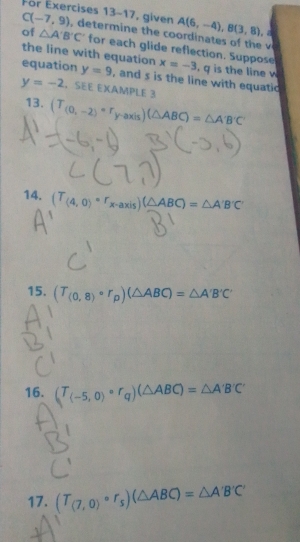 For Exercises 13–17, given A(6, −4), B(3, 8),
C(−7, 9), determine the coordinates of the
of △A'B'C' for each glide reflection. Suppose
the line with equation x = −3, q is the line
equation y = 9, and s is the line with
y = −2. SEE EXAMPLE 3
13. (T⟨0, −2⟩ ∘ ry-axis)(△ABC) = △A'B'C'
A'=(-6,-6) B'(-3,6)
C(7,7)
14. (T⟨4, 0⟩ ∘ rx-axis)(△ABC) = △A'B'C'
A' B'
C'
15. (T⟨0, 8⟩ ∘ rp)(△ABC) = △A'B'C'
A'
B'
C'
16. (T⟨−5, 0⟩ ∘ rq)(△ABC) = △A'B'C'
A'
B'
C'
17. (T⟨7, 0⟩ ∘ rs)(△ABC) = △A'B'C'
A'